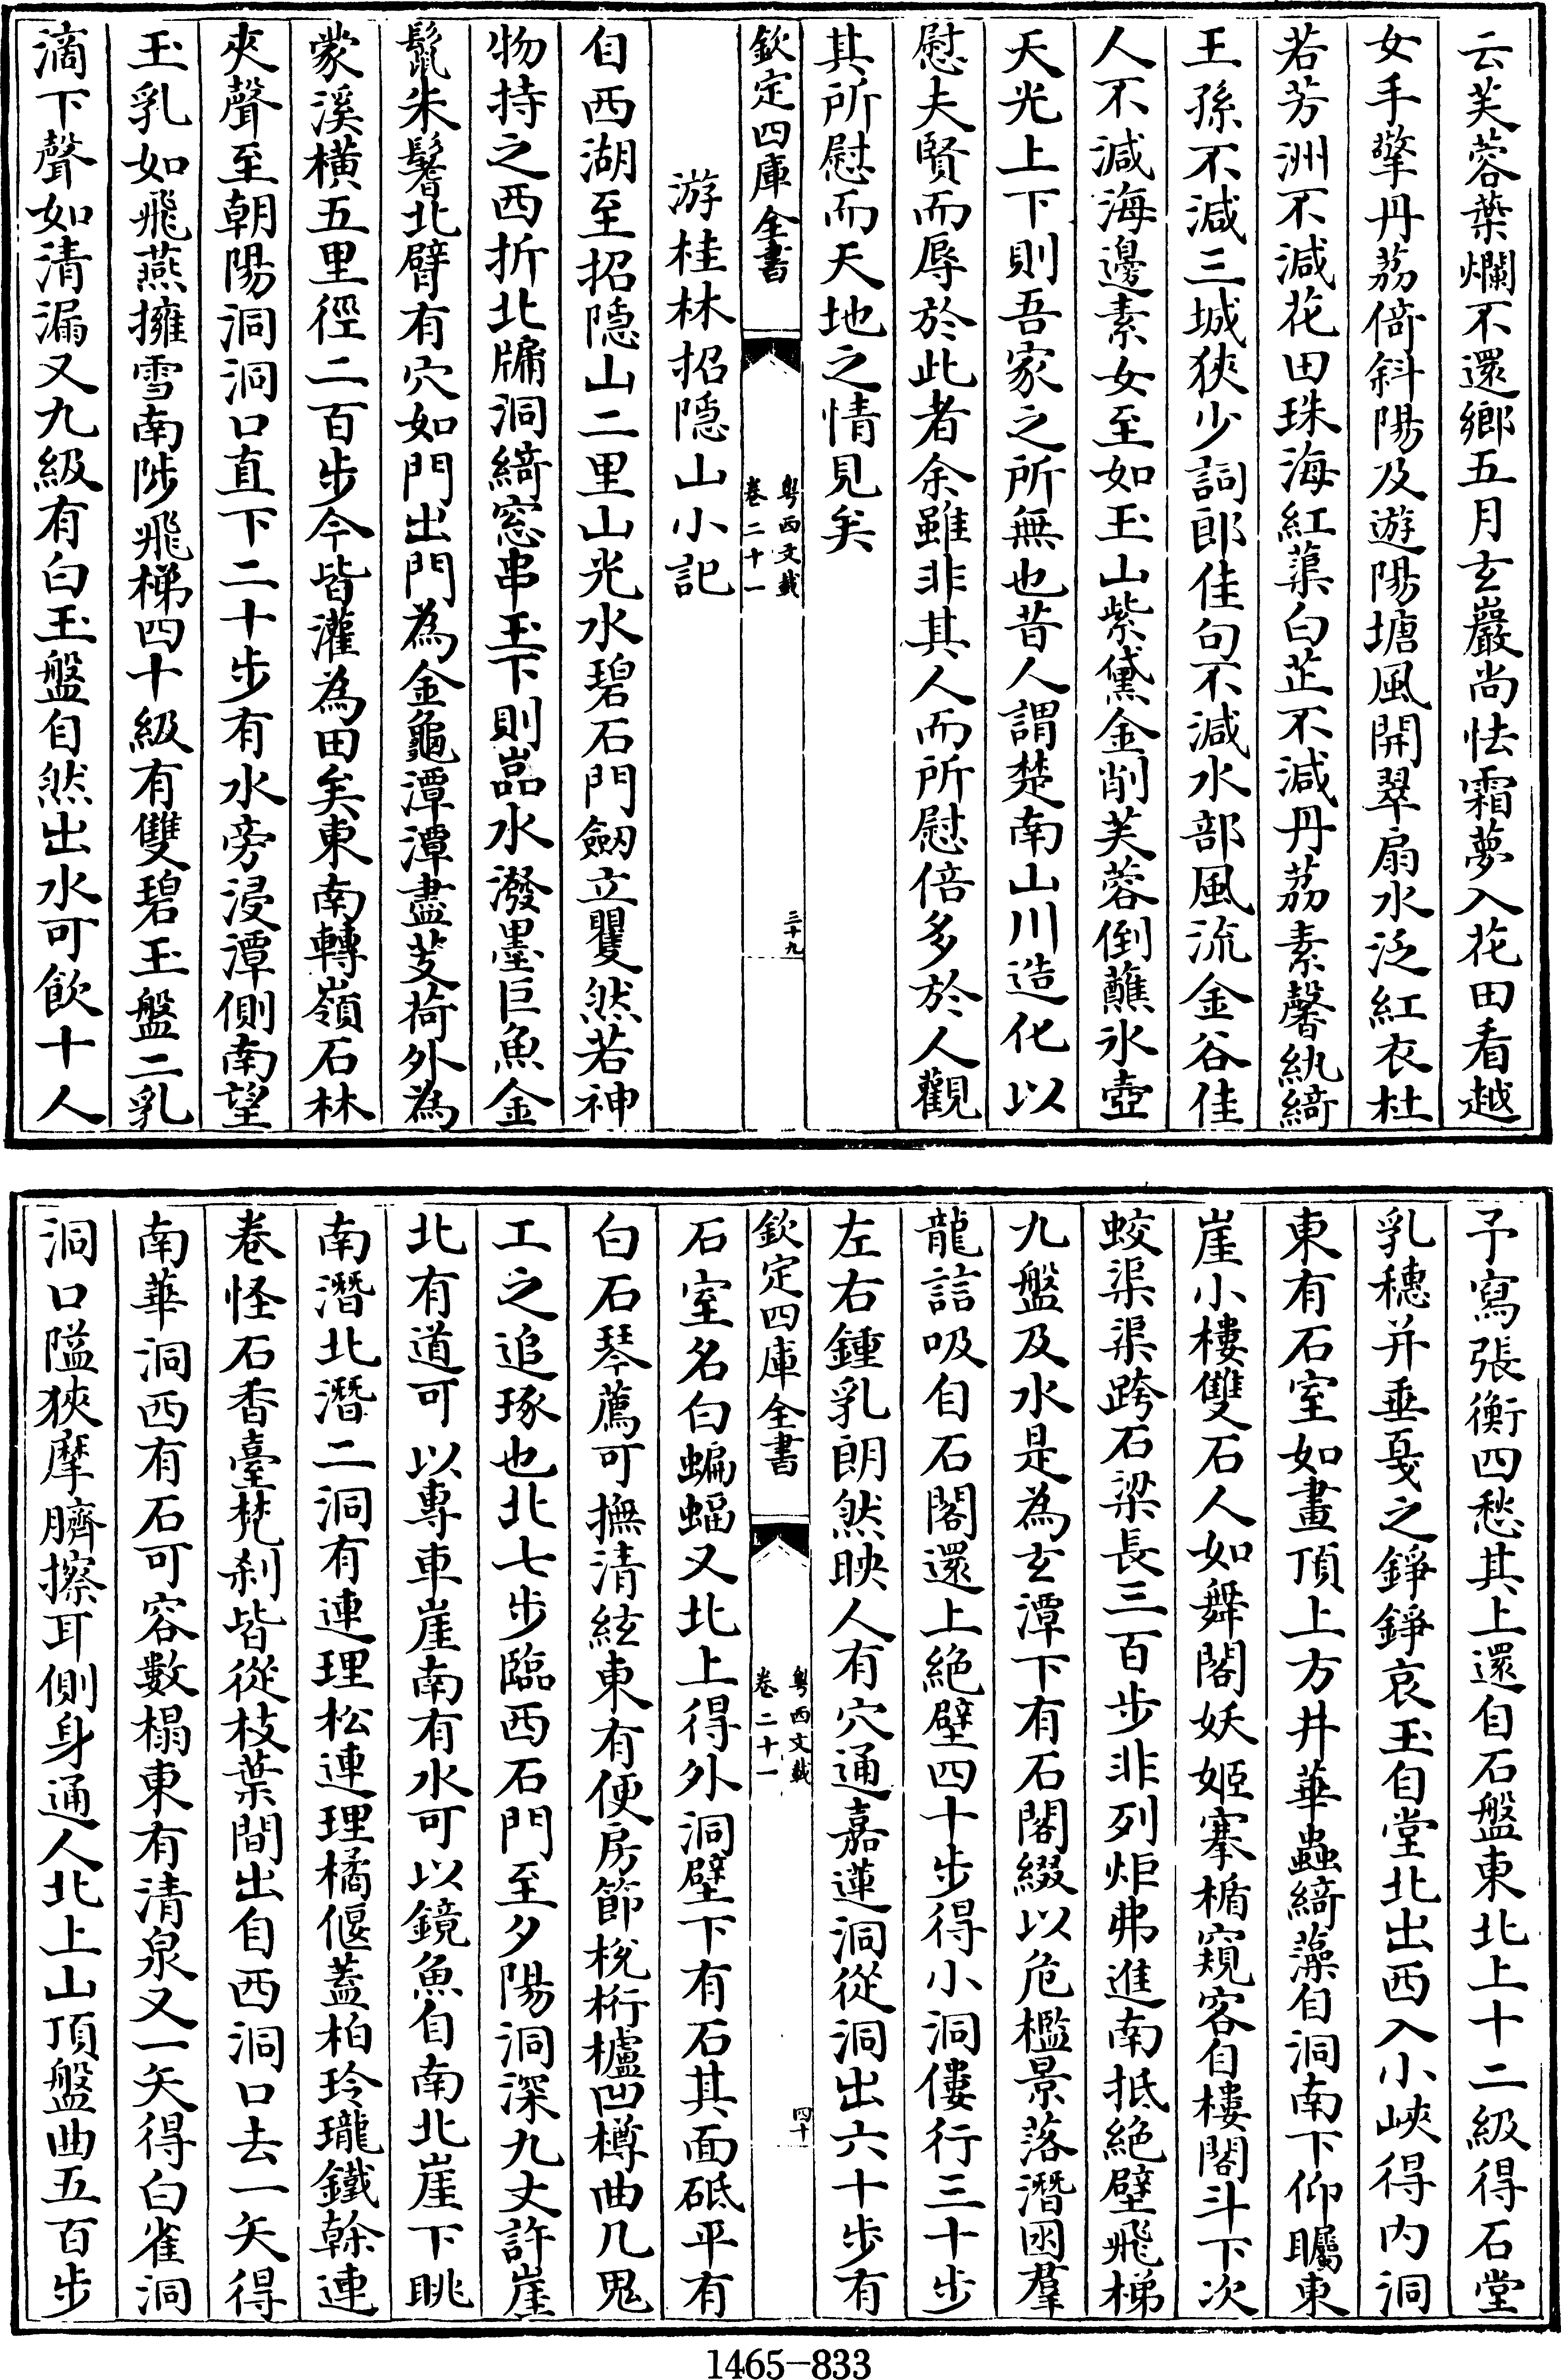 云芙蓉葉爛不還鄉五月玄巖尚怯霜夢入花田看越
女手擎丹荔倚斜陽及遊陽塘風開翠扇水泛紅衣杜
若芳洲不減花田珠海紅蕖白芷不減丹荔素馨紈綺
王孫不減三城狹少詞郎佳句不減水部風流金谷佳
人不減海邊素女至如玉山紫黛金削芙蓉倒蘸氷壺
天光上下則吾家之所無也昔人謂楚南山川造化以
慰夫賢而辱於此者余雖非其人而所慰倍多於人觀
其所慰而天地之情見矣
欽定四庫全書 粵西文載 卷二十一 三十九
游桂林招隱山小記
自西湖至招隱山二里山光水碧石門劒立矍然若神
物持之西折北牖洞綺窓串玉下則嵓水潑墨巨魚金
鬛朱鬐北臂有穴如門出門為金龜潭潭盡芰荷外為
蒙溪橫五里徑二百步今皆灌為田矣東南轉嶺石林
夾聲至朝陽洞洞口直下二十步有水旁浸潭側南望
玉乳如飛燕擁雪南陟飛梯四十級有雙碧玉盤二乳
滴下聲如清漏又九級有白玉盤自然出水可飲十人
予寫張衡四愁其上還自石盤東北上十二級得石堂
乳穗并垂戛之錚錚哀玉自堂北出西入小峽得內洞
東有石室如畫頂上方井華蟲綺藻自洞南下仰矚東
崖小樓雙石人如舞閣妖姬搴楯窺客自樓閣斗下次
蛟渠渠跨石梁長三百步非列炬弗進南抵絕壁飛梯
九盤及水是為玄潭下有石閣綴以危檻景落潛囦羣
龍詰吸自石閣還上絕壁四十步得小洞僂行三十步
左右鍾乳朗然映人有穴通嘉蓮洞從洞出六十步有
欽定四庫全書 粵西文載 卷二十一 四十
石室名白蝙蝠又北上得外洞壁下有石其面砥平有
白石琴薦可撫清絃東有便房節梲桁櫨凹樽曲几鬼
工之追琢也北七步臨西石門至夕陽洞深九丈許崖
北有道可以專車崖南有水可以鏡魚自南北崖下眺
南潛北潛二洞有連理松連理橘偃蓋柏玲瓏鐵榦連
卷怪石香臺梵刹皆從枝葉間出自西洞口去一矢得
南華洞西有石可容數榻東有清泉又一矢得白雀洞
洞口隘狹摩臍擦耳側身通人北上山頂盤曲五百步
1465-833